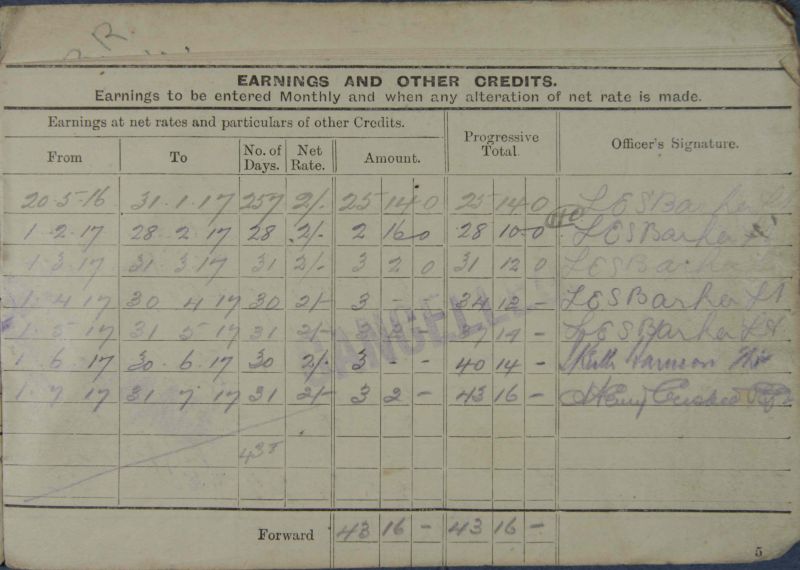 R.
EARNINGS AND OTHER CREDITS.
Earnings to be entered Monthly and when any alteration of net rate is made.
Earnings at net rates and particulars of other Credits. Progressive Total. Officer's Signature.
From To No. of Days. Net Rate. Amount.
20-5-16 31.1.17 257 2/- 25 14 0 25 14 0 L E S Barker Lt
1-2.17 28.2.17 28 2/- 2 16 0 28 10-0 L E S Barker Lt
1.3.17 31.3.17 31 2/- 3 2 0 31 12 0 L E S Barker
1.4 17 30 4 17 30 2/- 3 - - 34 12 - L E S Barker Lt
1-5-17 31 5 17 31 2/- 3 2 - 37 14 - L E S Barker Lt
1.6.17 30.6.17 30 2/- 3 - - 40 14 - Keith
1.7.17 31 7 17 31 2/- 3 2 - 43 16 -
CANCELLED
438
Forward 43 16 - 43 16 -
5